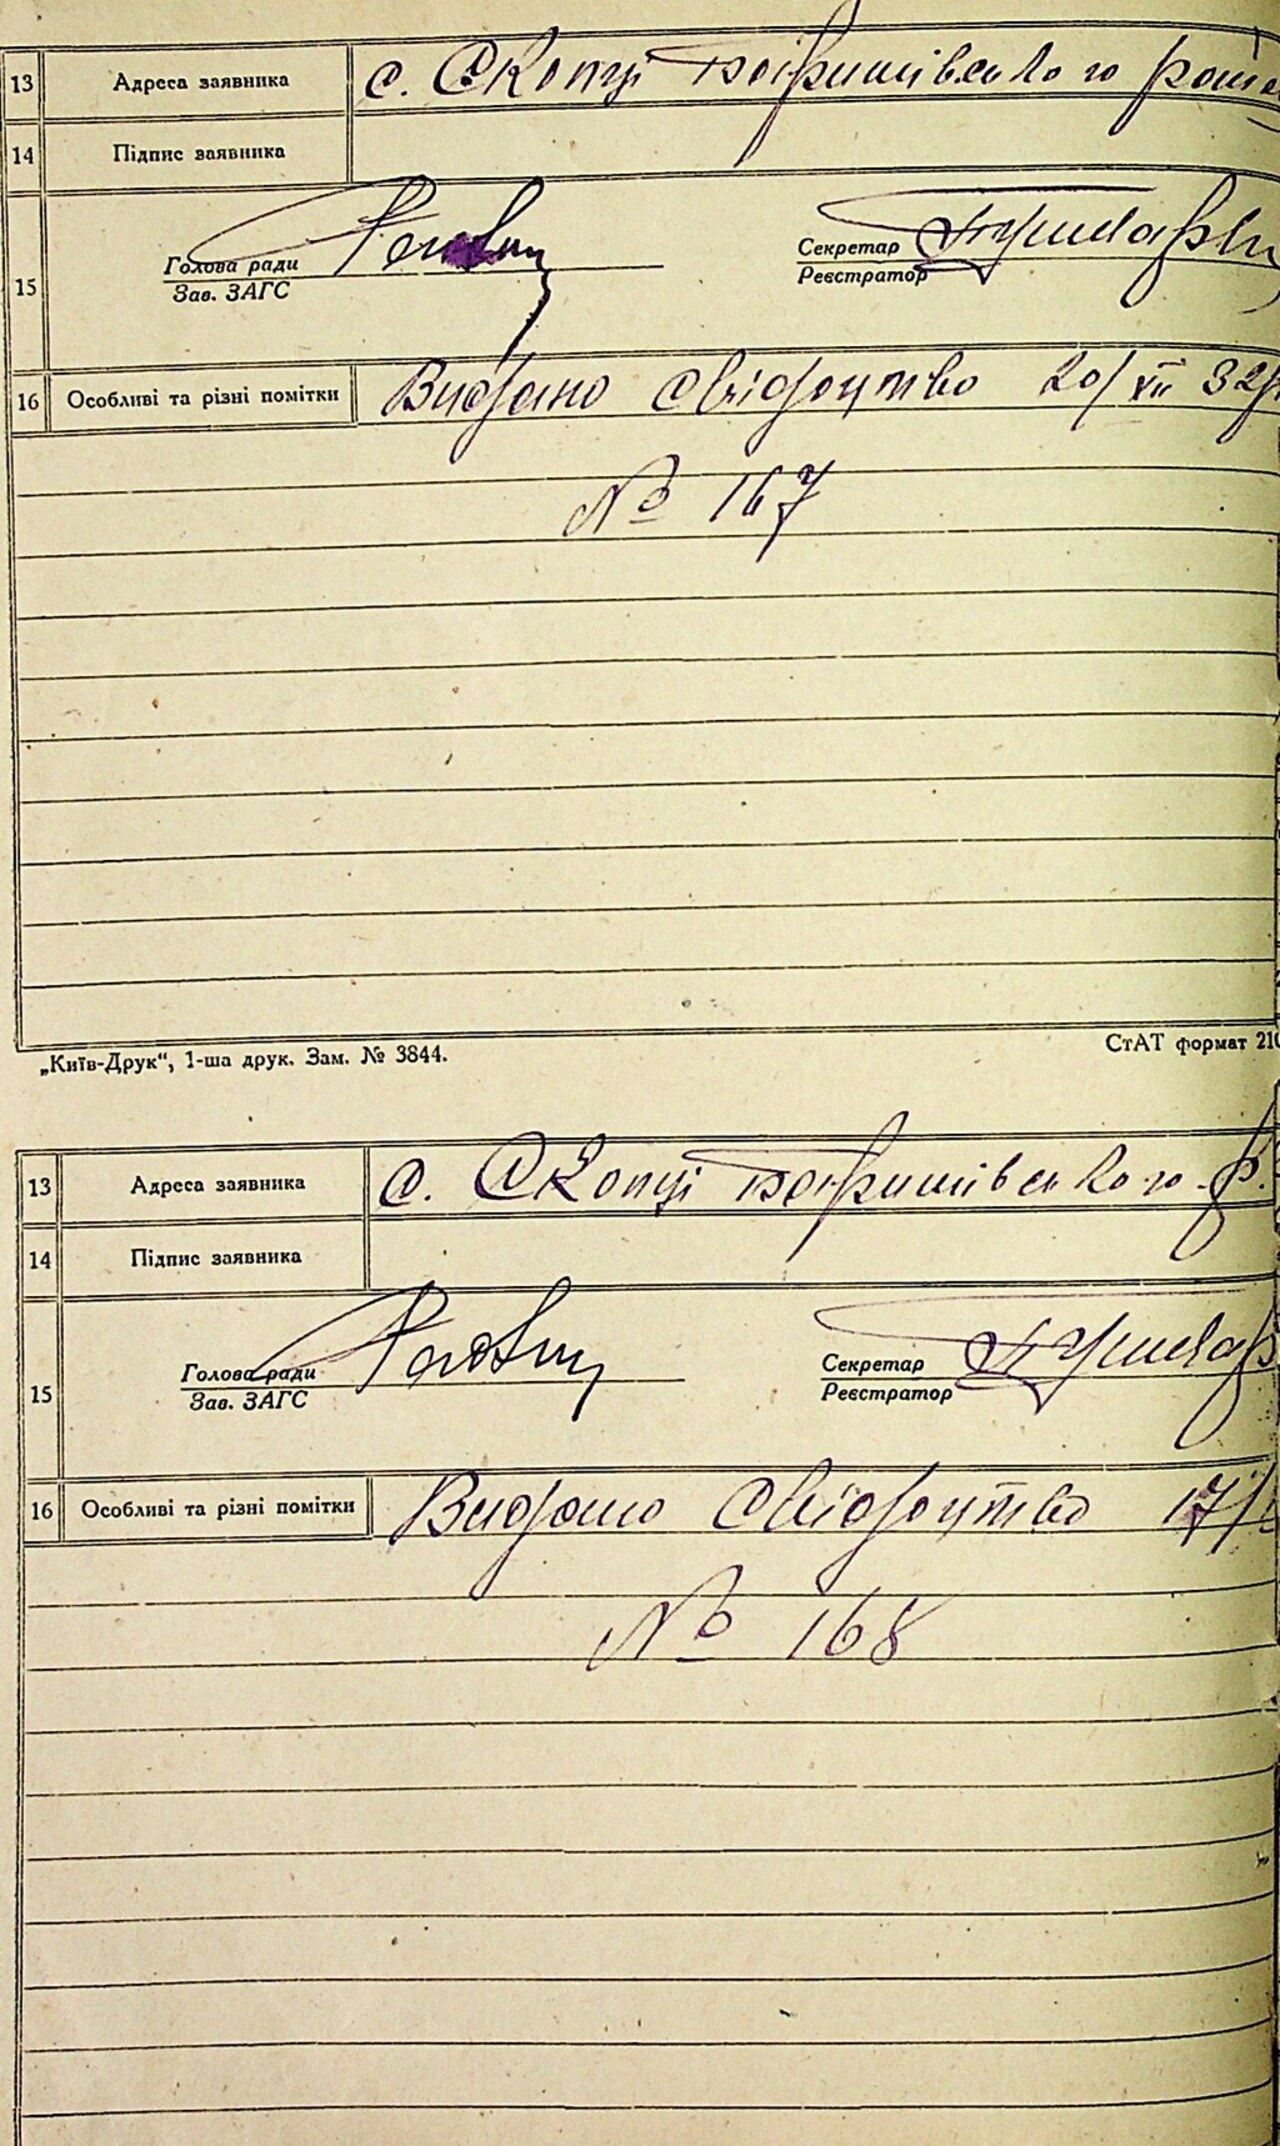 13 Адреса заявника с. Скопці Баришівського
14 Підпис заявника
Голова ради Секретар
15 Зав. ЗАГС Реєстратор
16 Особливі та різні помітки Видано свідоцтво 20/VII 32р.
№ 167
„Київ-Друк“, 1-ша друк. Зам. № 3844. СтАТ формат 210
13 Адреса заявника с. Скопці Баришівського р.
14 Підпис заявника
Голова ради Секретар
15 Зав. ЗАГС Реєстратор
16 Особливі та різні помітки Видано свідоцтво 17/
№ 168